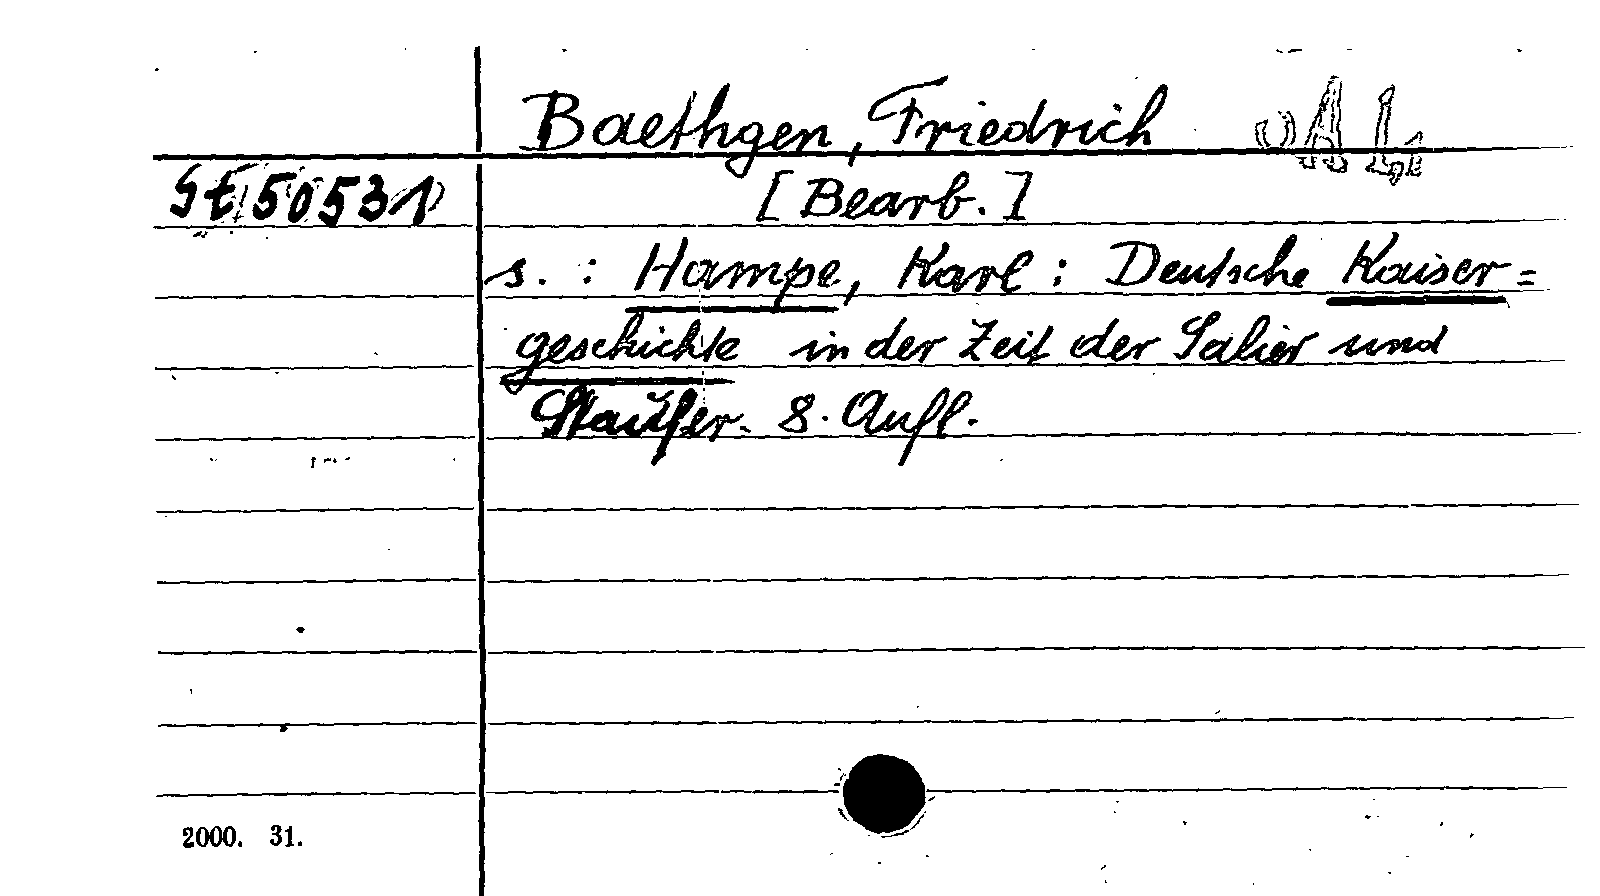 Baethgen, Friedrich
St 50531
[Bearb.]
s.: Hampe, Karl: Deutsche Kaiser=
geschichte in der Zeit der Salier und
Staufer. 8. Aufl.
2000. 31.